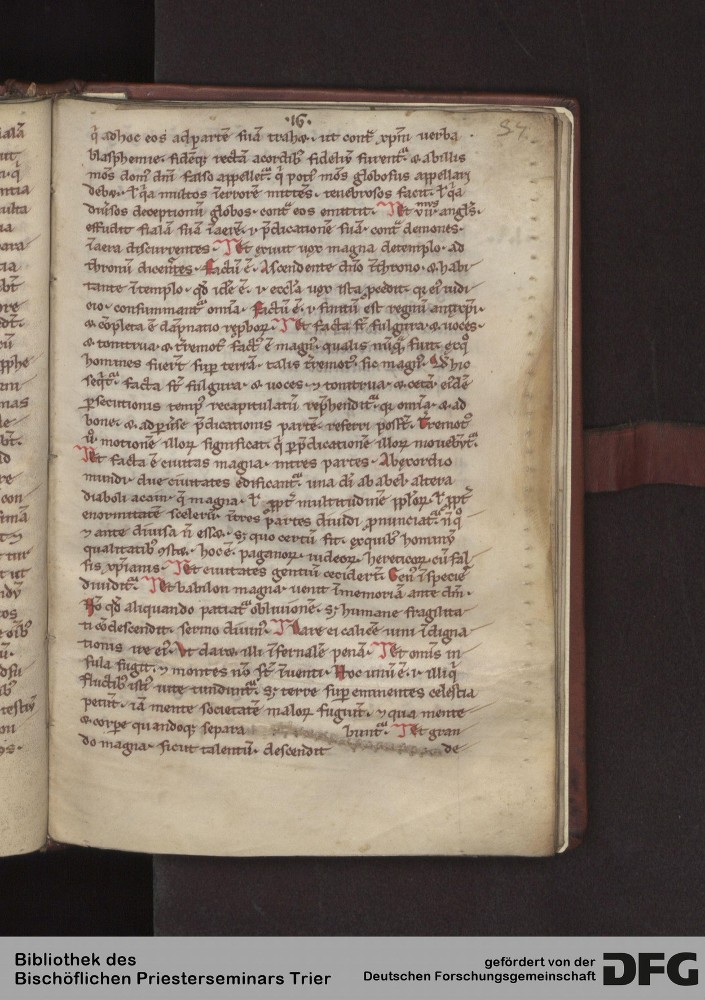 ·16·
37.
q̇ adhoc eos adpartē suā trahat. ut contͣ xp̄m uerba
blasphemie. fidēq; rectā acordibꝰ fideliū furentᷣ. & abillis
mōs domꝰ dn̄i falso appelletᷣ. q̇ potiꝰ mōs globosus appellari
debet. ł q̇a multos ī errore mittēs. tenebrosos facit. ł q̇a
diūsos deceptionū globos. contͣ eos emittit. Et vii angl̄s.
effudit fialā suā ī aerē. i. p̄dicationē suā. contͣ demones.
ī aera discurrentes. Et exiuit uox magna detemplo. ad
thronū dicentes. Factū ē. Ascendente dn̄o ī throno. & habi
tante ī templo. qd̄ idē ē. i. eccl̄a uox ista pcedit. qr eiꝰ iudi
cio. consummantᷣ om̄ia. Factū ē. i. finitū est regnū antixp̄i.
& cōpleta ē dāpnatio rep̄borꝝ. Et facta st̄ fulgura. & uoces.
& tonitrua. & t̄remotꝰ factꝰ ē magnꝰ. qualis nūq̄ fuit. ex quo
homines fuer̄t sup terrā. talis t̄remotꝰ. sic magnꝰ. Ad hic
seq̄tᷣ. facta st̄ fulgura. & uoces. ⁊ tonitrua. & cetā. eidē
p̱secutionis tempꝰ recapitulatū rep̄hendit. qr om̄ia. & ad
bone. & ad puse p̄dicationis partē. referri poss̄t. T̄remotꝰ
ū motionē illorꝝ significat. q̇ p̱ p̄dicationē illorꝝ mouebūtᷣ.
Et facta ē ciuitas magna. in tres partes. Ab exordio
mundi. due ciuitates edificantᷣ. una dī. ab abel. altera
diaboli a cain. q̄ magna. ł ꝓpt̄ multitudinē pplorꝝ. ł ꝓpt̄
enormitatē scelerū. ī tres partes diuidi p̱nunciatᷣ. n̄ qͦ
⁊ ante diuisa n̄ esset. s; quo certū fit. ex quibꝰ hominū
qualitatibꝰ ꝯstet. hoc ē. paganorꝝ. iudeorꝝ. hereticorꝝ. cū fal
sis xp̄ianis. Et ciuitates gentiū cecider̄t. Ceuꝰ ī specie
diuiditᷣ. Et babilon magna. uenit ī memoriā ante dm̄.
Nō qd̄ aliquando patiatᷣ obliuionē. s; humane fragilita
ti cōdescendit. sermo diuinꝰ. Dare ei calicē uini īdigna
tionis ire eiꝰ. Vt daret illi īfernalē penā. Et om̄is in
sula fugit. ⁊ montes nō st̄ īuenti. Hoc unū ē. i. illi q̇
fluctibꝰ istiꝰ uite tundunt. s; terre sup eminentes celestia
petūt. iā mente societatē malorꝝ fugiūt. ⁊ qua mente
& corpe quandoq; separa bunt. Et gran
do magna. sicut talentū. descendit de
Bibliothek des
Bischöflichen Priesterseminars Trier
gefördert von der
Deutschen Forschungsgemeinschaft
DFG